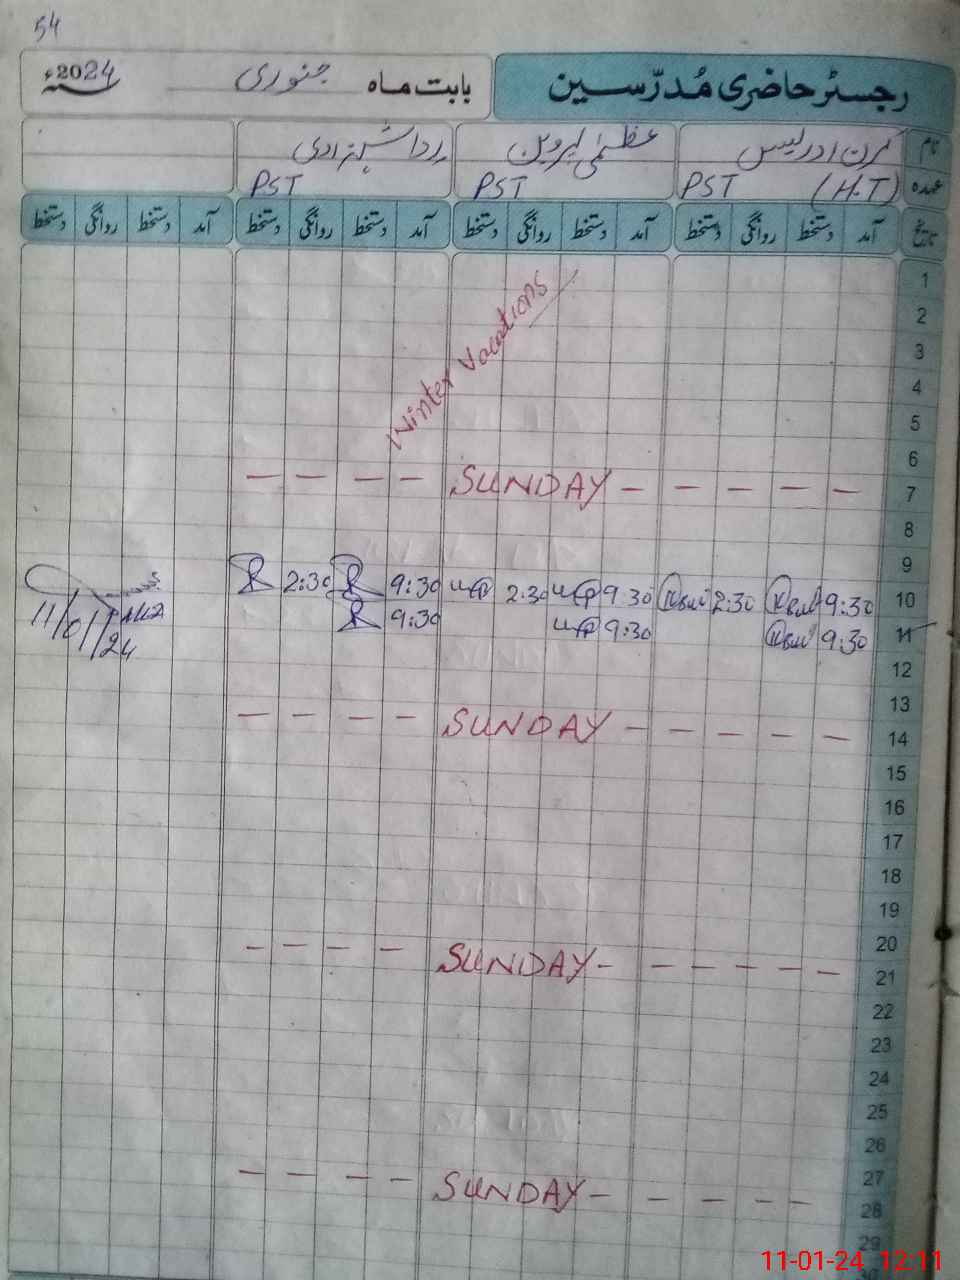 54
رجسٹر حاضری مُدرّسین
بابت ماہ جنوری 2024ء
نام کرن ادریس عظمٰی پروین ردا شہزادی
عہدہ PST (H.T) PST PST
تاریخ آمد دستخط روانگی دستخط آمد دستخط روانگی دستخط آمد دستخط روانگی دستخط آمد دستخط روانگی دستخط
1
2
3
4
5
Winter Vacations
6
7 - - - - SUNDAY - - - - -
8
9
10 9:30 2:30 9:30 2:30 9:30 2:30
11 9:30 9:30 9:30
11/01/24
12
13
14 - - - - SUNDAY - - - - -
15
16
17
18
19
20
21 - - - - SUNDAY - - - - -
22
23
24
25
26
27
28 - - - - SUNDAY - - - - -
29
11-01-24 12:11